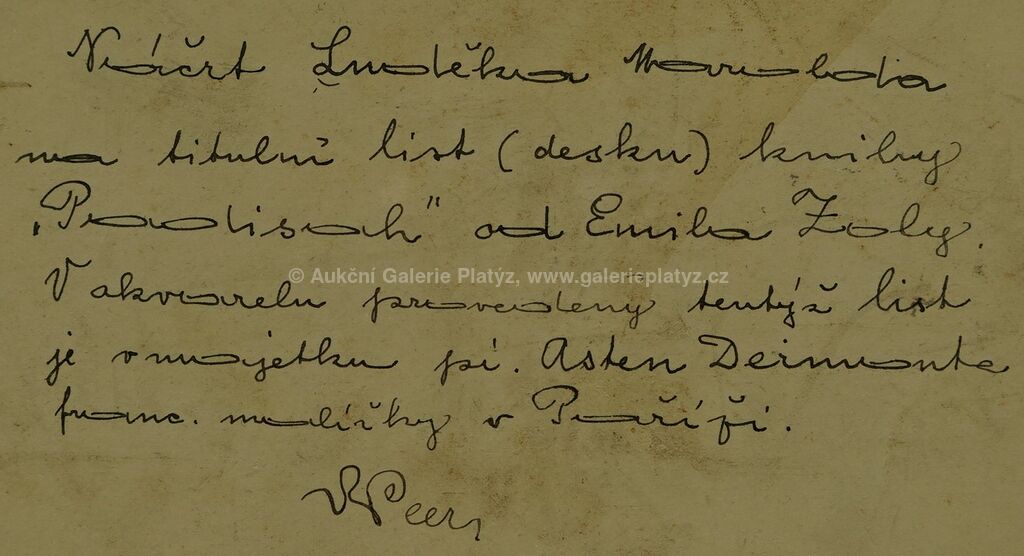 Náčrt Luděka Marolda
na titulní list (desku) knihy
„Paulisah" od Emila Zoly.
© Aukční Galerie Platýz, www.galerieplatyz.cz
V akvarelu provedeny tentýž list
je v majetku pí. Asten Dermonte
franc. malířky v Paříži.
Peers